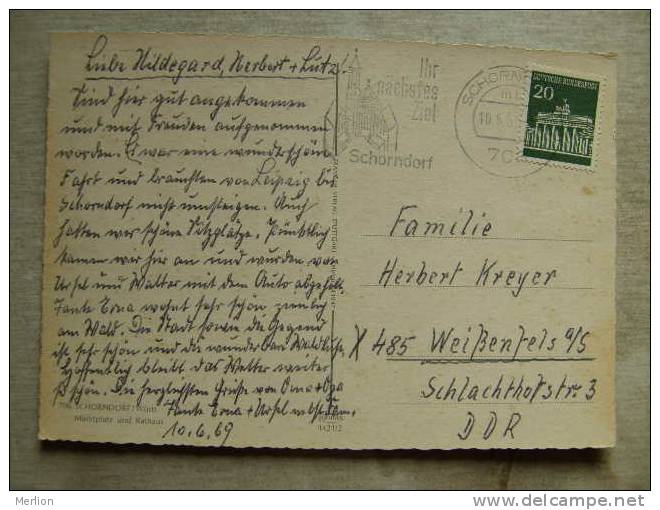 Liebe Hildegard, Herbert + Lutz!
Sind hier gut angekommen
und mit Freuden aufgenommen
worden. Es war eine wunderschöne
Fahrt und brauchten von Leipzig bis
Schorndorf nicht umsteigen. Auch
hatten wir schöne Sitzplätze. Pünktlich
kamen wir hier an und wurden von
Ursel und Walter mit dem Auto abgeholt.
Tante Erna wohnt sehr schön ziemlich
am Wald. Die Stadt sowie die Gegend
ist sehr schön und die wunderbare
Hoffentlich bleibt das Wetter weiter
so schön. Die herzlichsten Grüße von Oma + Opa
Tante Erna + Ursel
10.6.69
SCHORNDORF / Württ.
Marktplatz und Rathaus
Ihr
nächstes
Ziel
Schorndorf
SCHORN
10.6.6
70
DEUTSCHE BUNDESPOST
20
Familie
Herbert Kreyer
X 485 Weißenfels a/S
Schlachthofstr. 3
DDR
Merlion
http://www.delcampe.net